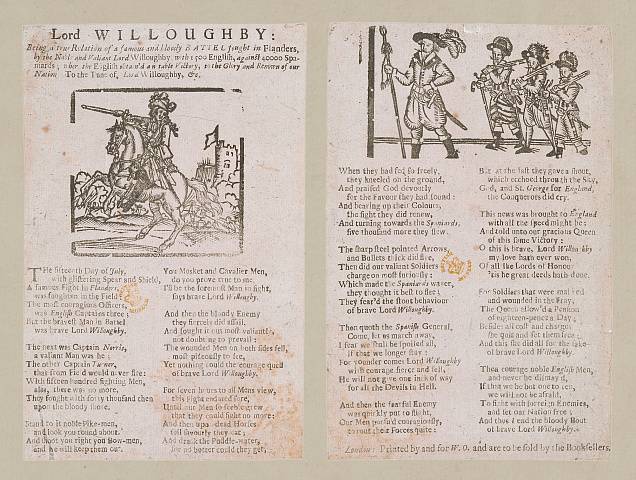 Lord WILLOUGHBY:
Being a true Relation of a famous and bloody BATTEL fought in Flanders,
by the Noble and Valiant Lord Willoughby, with 1500 English, against 40000 Spa-
niards; where the English obtain'd a notable Victory, to the Glory and Renown of our
Nation. To the Tune of, Lord Willoughby, &c.
THe fifteenth Day of July,
with glistering Spear and Shield,
A famous Fight in Flanders,
was foughten in the Field:
The most couragious Officers,
was English Captains three;
But the bravest Man in Battel
was brave Lord Willoughby.
The next was Captain Norris,
a valiant Man was he;
The other Captain Turner,
that from Field would never fire:
With fifteen hundred fighting Men,
alas, there was no more,
They fought with forty thousand then
upon the bloody shore.
Stand to it noble Pike-men,
and look you round about,
And shoot you right you Bow-men,
and we will keep them out.
You Mosket and Cavalier Men,
do you prove true to me,
I'll be the foremost Man in fight,
says brave Lord Willoughby.
And then the bloody Enemy
they fiercely did assail,
And fought it out most valiantly,
not doubting to prevail:
The wounded Men on both sides fell,
most piteously to see,
Yet nothing could the courage quell
of brave Lord Willoughby.
For seven hours to all Mens view,
this fight endured sore,
Until our Men so feeble grew
that they could fight no more:
And then upon dead Horses
full favourly they eat;
And drank the Puddle-water,
for no better could they get;
When they had fed so freely,
they kneeled on the ground,
And praised God devoutly
for the Favour they had found:
And bearing up their Colours,
the fight they did renew,
And turning towards the Spaniards,
five thousand more they slew.
The sharp steel pointed Arrows,
and Bullets thick did flie,
Then did our valiant Soldiers
charge on most furiously:
Which made the Spaniards waver,
they thought it best to flee;
They fear'd the stout behaviour
of brave Lord Willoughby.
Then quoth the Spanish General,
Come, let us march away,
I fear we shall be spoiled all,
if that we longer stay:
For yonder comes Lord Willoughby
with courage fierce and fell,
He will not give one inch of way
for all the Devils in Hell.
And then the fearful Enemy
was quickly put to flight,
Our Men pursu'd couragiously,
to rout their Forces quite:
But at the last they gave a shout,
which ecchoed through the Sky,
God, and St. George for England,
the Conquerors did cry.
This news was brought to England
with all the speed might be;
And told unto our gracious Queen
of this same Victory:
O this is brave, Lord Willoughby
my love hath ever won,
Of all the Lords of Honour
'tis he great deeds hath done.
For Soldiers that were maimed
and wounded in the Fray,
The Queen allow'd a Pension
of eighteen-pence a Day;
Besides all cost and charges
she quit and set them free:
And this she did all for the sake
of brave Lord Willoughby.
Then courage noble English Men,
and never be dismay'd,
If that we be but one to ten,
we will not be afraid,
To fight with foreign Enemies,
and set our Nation free:
And thus I end the bloody Bout
of brave Lord Willoughby.
London: Printed by and for W. O. and are to be sold by the Booksellers.